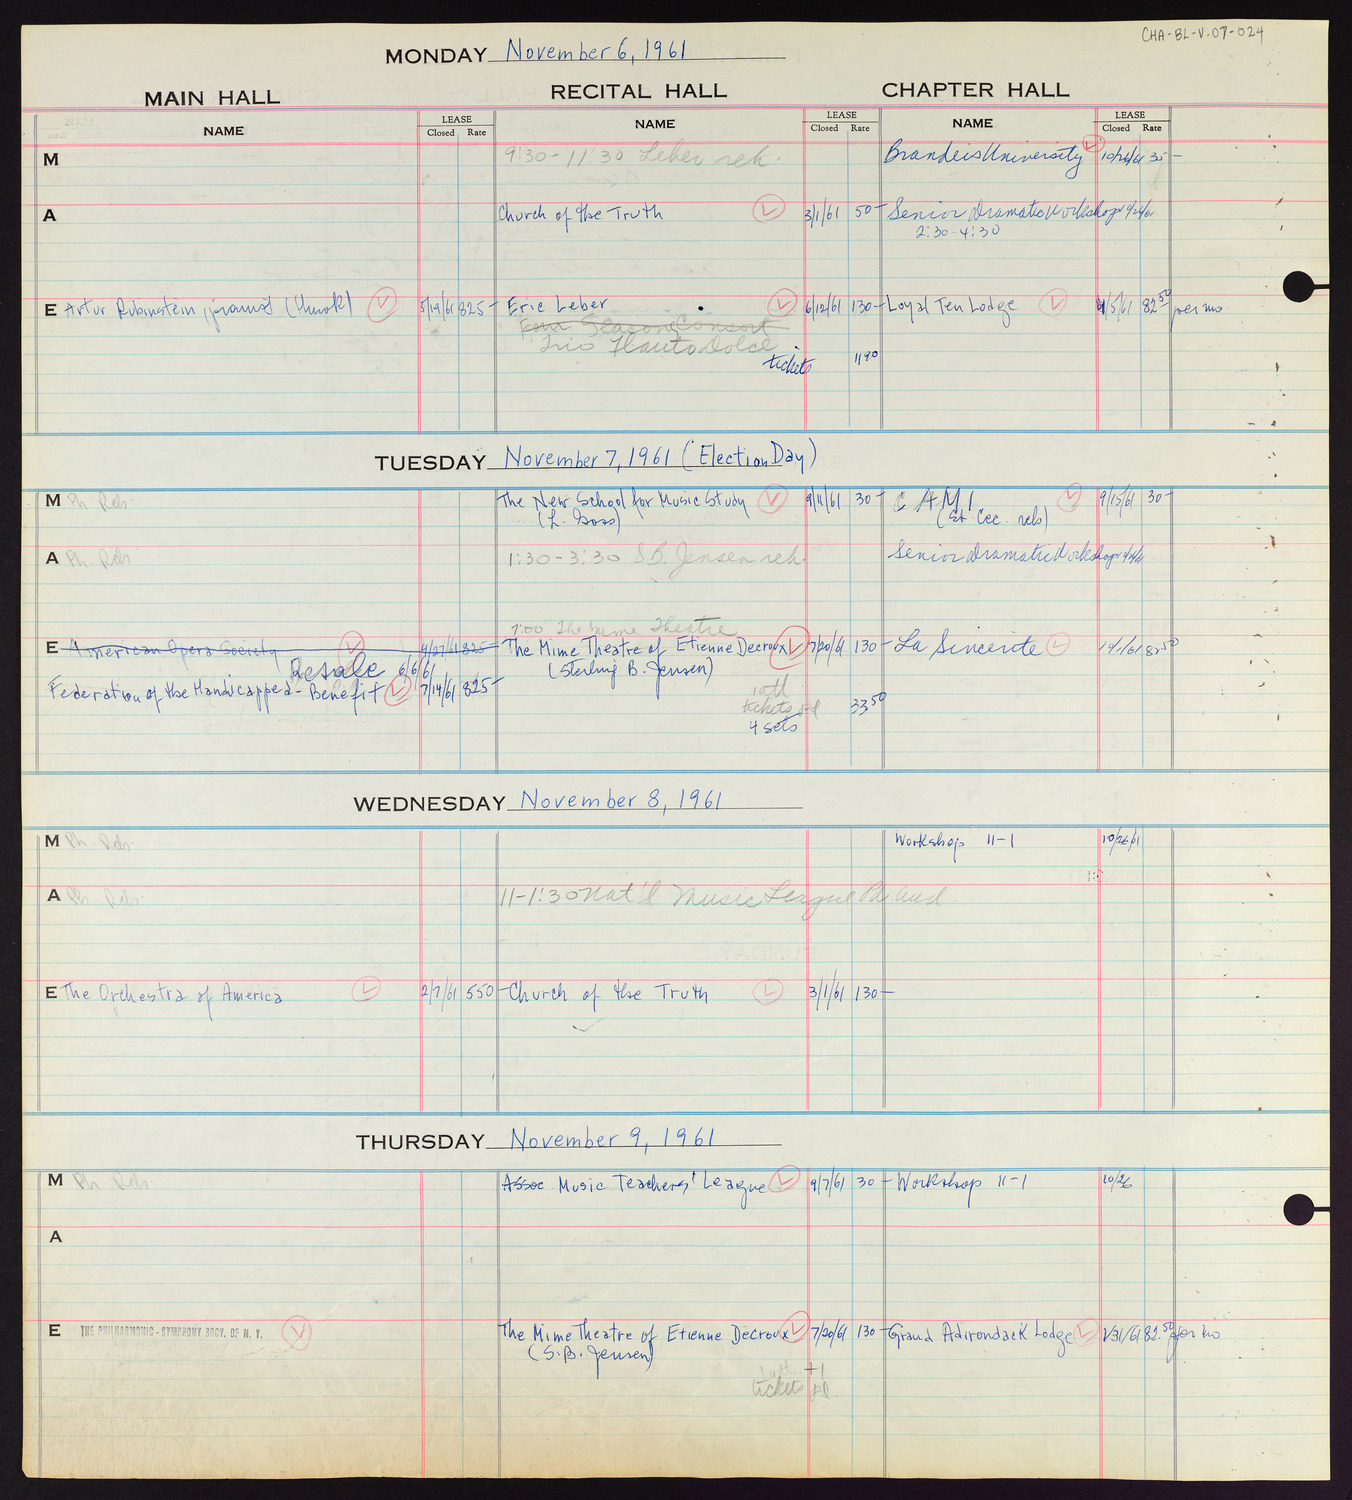 CHA-BL-V.07-024
MONDAY November 6, 1961
MAIN HALL RECITAL HALL CHAPTER HALL
NAME LEASE Closed Rate NAME LEASE Closed Rate NAME LEASE Closed Rate
M 9:30-11:30 Leber reh. Brandeis University 10/26/61 35-
A Church of the Truth 3/1/61 50- Senior Dramatic Workshop 9/21/61
2:30-4:30
E Artur Rubinstein, pianist (Hurok) 5/19/61 825- Eric Leber 6/12/61 130- Loyal Ten Lodge 4/5/61 82.50 per mo
Four Season Consort
Trio Flauto Dolce
tickets 11.90
TUESDAY November 7, 1961 (Election Day)
M Ph. Reh. The New School for Music Study 9/11/61 30- C A M I 9/15/61 30-
(L. Goss) (St. Cec. reh)
A Ph. Reh 1:30-3:30 S.B. Jensen reh. Senior Dramatic Workshop
7:00 The Mime Theatre
E American Opera Society 4/27/61 825- The Mime Theatre of Etienne Decroux 7/20/61 130- La Sincerite 82.50
Resale 6/6/61 (Sterling B. Jensen)
Federation of the Handicapped - Benefit 7/14/61 825-
tickets pd 33.50
4 sets
WEDNESDAY November 8, 1961
M Ph. Reh. Workshop 11-1 10/26/61
A Ph. Reh. 11-1:30 Nat'l Music League Pa. Aud
E The Orchestra of America 2/7/61 550- Church of the Truth 3/1/61 130-
THURSDAY November 9, 1961
M Ph. Reh. Assoc Music Teachers' League 9/7/61 30- Workshop 11-1 10/26
A
E THE PHILHARMONIC-SYMPHONY SOCY. OF N. Y. The Mime Theatre of Etienne Decroux 7/20/61 130- Grand Adirondack Lodge 1/31/61 82.50 per mo
(S.B. Jensen)
+1
tickets pd.